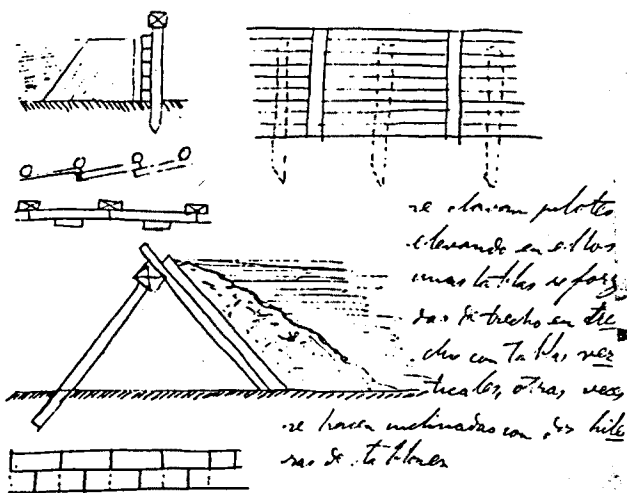 se clavan pilotes
clavando en ellos
unas tablas reforza
das de trecho en tre
cho con tablas ver
ticales, otras veces
se hacen inclinadas con dos hile
ras de tablones